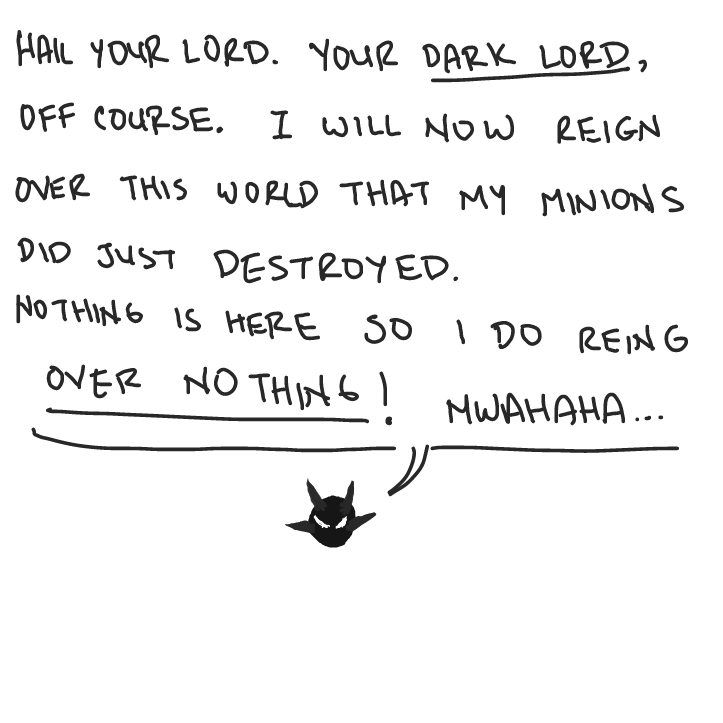 HAIL YOUR LORD. YOUR DARK LORD,
OFF COURSE. I WILL NOW REIGN
OVER THIS WORLD THAT MY MINIONS
DID JUST DESTROYED.
NOTHING IS HERE SO I DO REING
OVER NOTHING! MWAHAHA...